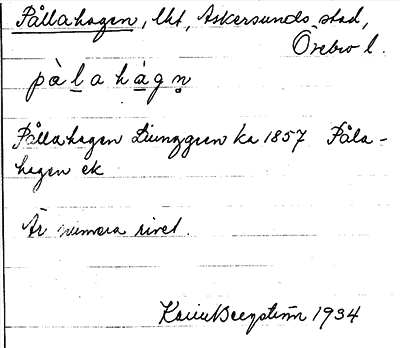 Pållahagen, lht, Askersunds stad,
Örebro l.
pàlahàgn̥
Pållahagen Ljunggren ka 1857 Påla-
hagen ek
Är numera rivet.
Karin Bergström 1934